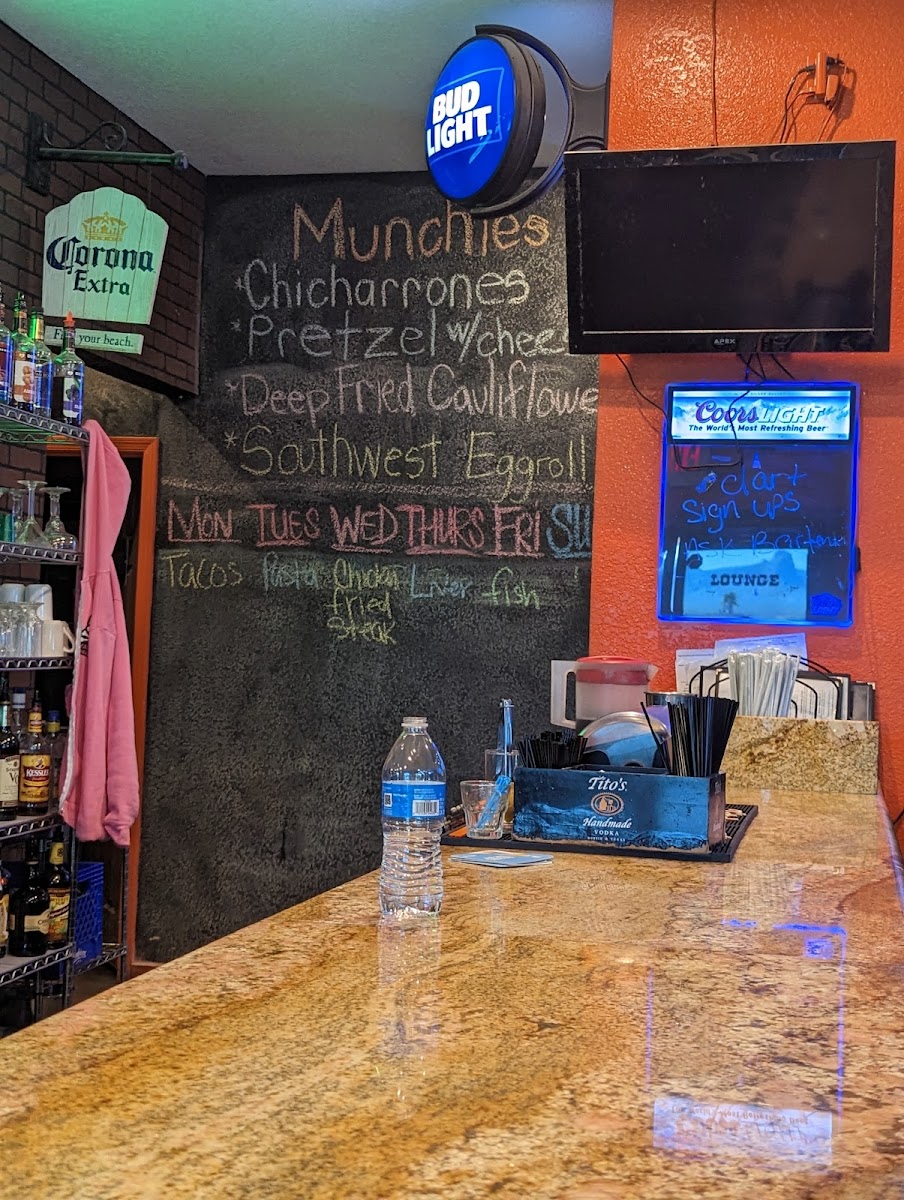 BUD
LIGHT
Corona
Extra
your beach.
Munchies
*Chicharrones
*Pretzel w/chee
*Deep Fried Cauliflowe
*Southwest Eggroll
MON TUES WED THURS FRI SU
Tacos Pasta Chicken Liver fish
fried
steak
APEX
Coors LIGHT
The World's Most Refreshing Beer
dart
sign ups
LOUNGE
Tito's
Handmade
VODKA
KESSLER